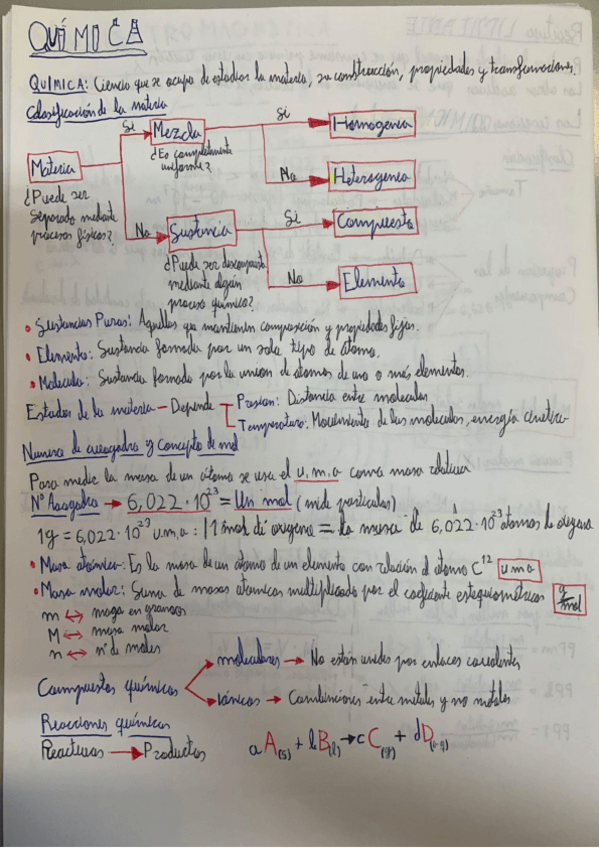 QUÍMICA
QUÍMICA: Ciencia que se ocupa de estudios la materia, su construcción, propiedades y transformaciones.
Clasificación de la materia
Si Mezcla Si Homogenea
¿Es completamente uniforme?
Materia No Heterogenea
¿Puede ser separado mediante procesos físicos?
No Sustancia Si Compuesto
¿Puede ser descompuesta mediante algún proceso químico?
No Elemento
• Sustancias Puras: Aquellas que mantienen composición y propiedades fijas.
• Elemento: Sustancia formada por un solo tipo de átomo.
• Molecula: Sustancia formado por la union de atomos de uno o más elementos.
Estados de la materia - Depende Presion: Distancia entre moleculas
Temperatura: Movimientos de las moleculas, energía cinetica
Numero de avogadro y concepto de mol
Para medir la masa de un átomo se usa el u.m.a como masa relativa
Nº Avogadro → 6,022·10²³ = Un mol (mide particulas)
1g = 6,022·10²³ u.m.a : 1 mol di oxigeno = la masa de 6,022·10²³ atomos de oxigeno
• Masa atómica: Es la masa de un atomo de un elemento con relación al atomo C¹² u.m.a
• Masa molar: Suma de masas atomicas multiplicado por el coeficiente estequiométricos g/mol
m ↔ masa en gramos
M ↔ masa molar
n ↔ nº de moles
Compuestos químicos moleculares → No están unidos por enlaces covalentes
iónicos → Combinaciones entre metales y no metales
Reacciones químicas
Reactivos → Productos aA(s) + bB(l) → cC(g) + dD(aq)